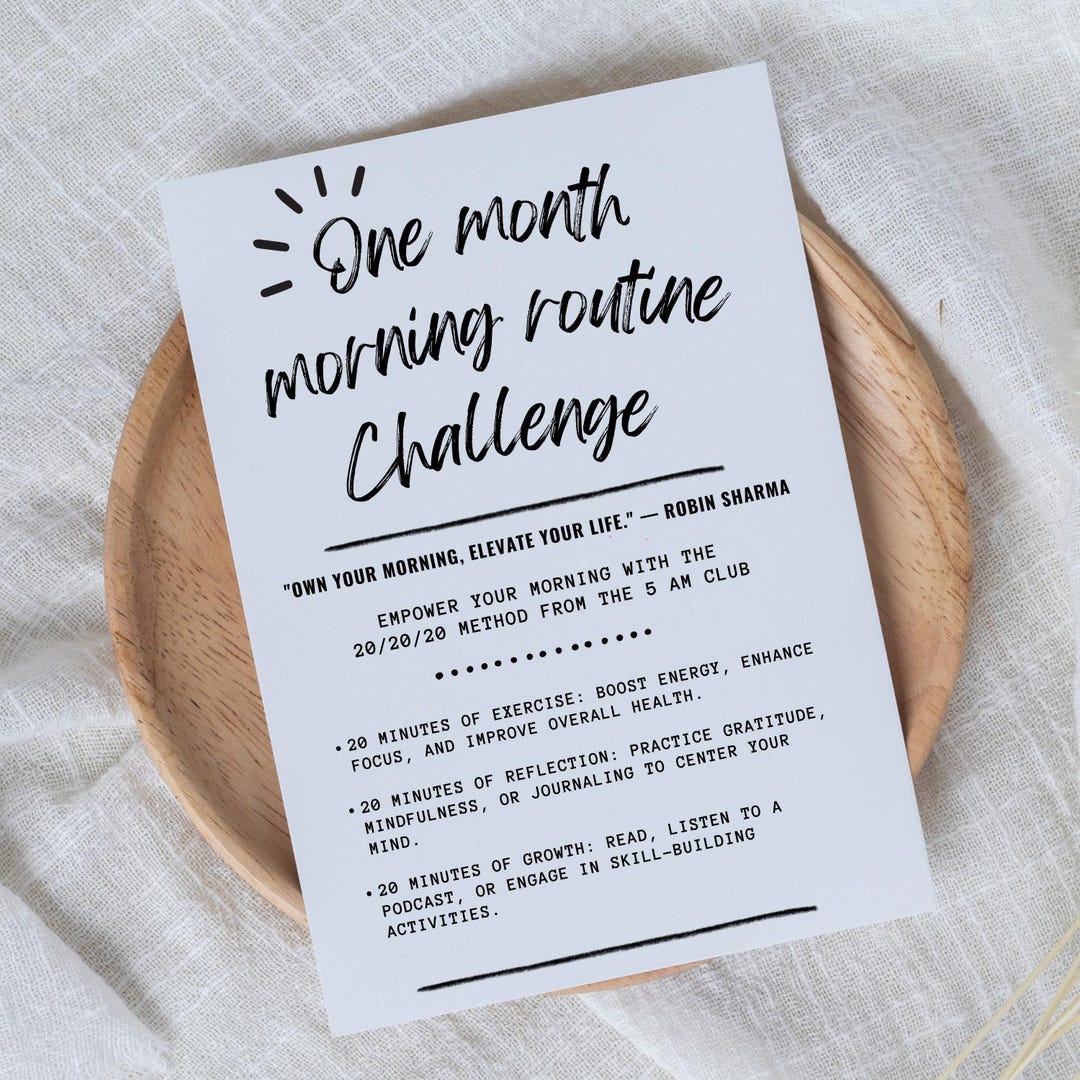 One month
morning routine
Challenge
"OWN YOUR MORNING, ELEVATE YOUR LIFE." — ROBIN SHARMA
EMPOWER YOUR MORNING WITH THE
20/20/20 METHOD FROM THE 5 AM CLUB
• 20 MINUTES OF EXERCISE: BOOST ENERGY, ENHANCE
FOCUS, AND IMPROVE OVERALL HEALTH.
• 20 MINUTES OF REFLECTION: PRACTICE GRATITUDE,
MINDFULNESS, OR JOURNALING TO CENTER YOUR
MIND.
• 20 MINUTES OF GROWTH: READ, LISTEN TO A
PODCAST, OR ENGAGE IN SKILL-BUILDING
ACTIVITIES.